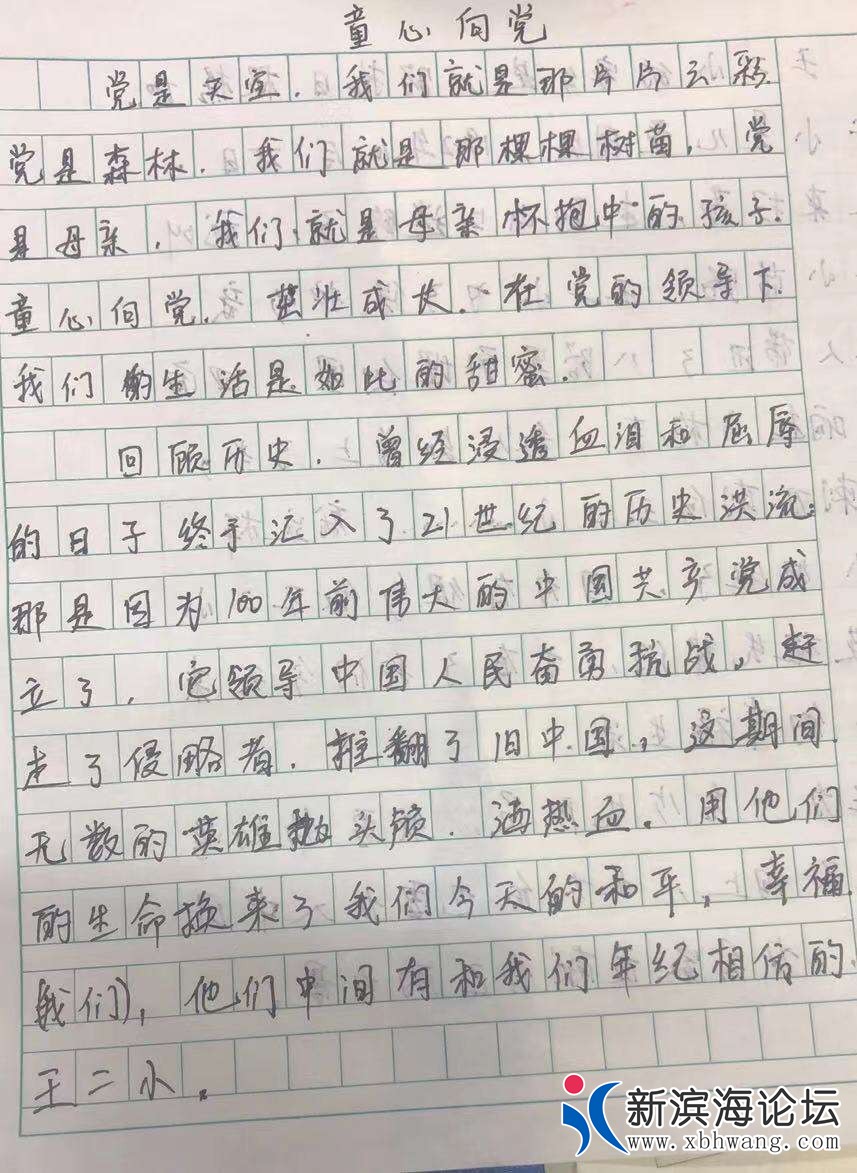 童心向党
党是天空.我们就是那片片云彩.
党是森林.我们就是那棵棵树苗,党
是母亲,我们就是母亲怀抱中的孩子.
童心向党.茁壮成长.在党的领导下.
我们的生活是如此的甜蜜.
回顾历史.曾经浸透血泪和屈辱
的日子终于汇入了21世纪的历史洪流.
那是因为100年前伟大的中国共产党成
立了,它领导中国人民奋勇抗战,赶
走了侵略者.推翻了旧中国,这期间
无数的英雄抛头颅.洒热血.用他们
的生命换来了我们今天的和平,幸福.
(我们),他们中间有和我们年纪相仿的
王二小。
新滨海论坛
www.xbhwang.com